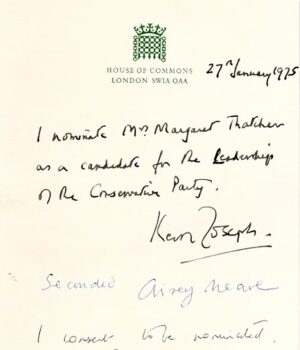 HOUSE OF COMMONS
LONDON SW1A 0AA
27th January 1975
I nominate Mrs Margaret Thatcher
as a candidate for the Leadership
of the Conservative Party.
Keith Joseph.
Seconded Airey Neave
I consent to be nominated.